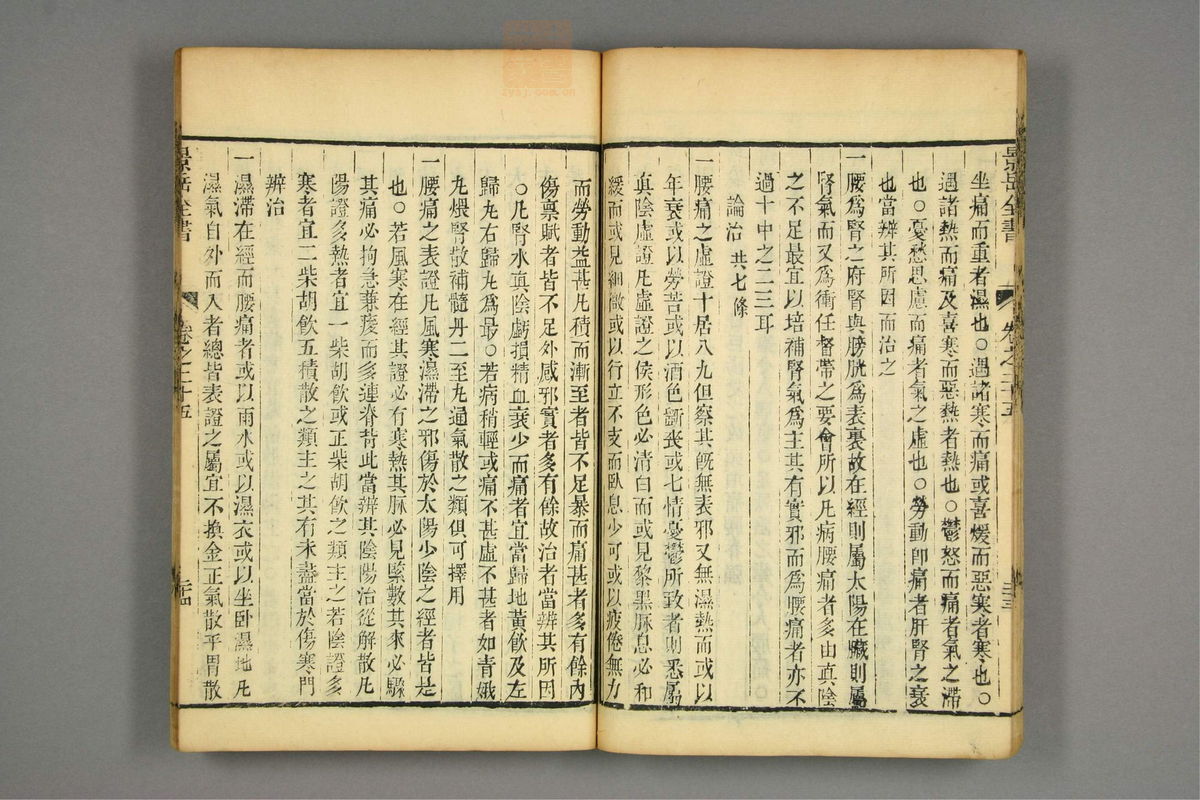 景岳全書
卷之二十五
坐痛而重者濕也○遇諸寒而痛或喜煖而惡寒者寒也○
遇諸熱而痛及喜寒而惡熱者熱也○鬱怒而痛者氣之滯
也○憂愁思慮而痛者氣之虛也○勞動卽痛者肝腎之衰
也當辨其所因而治之
一腰爲腎之府腎與膀胱爲表裏故在經則屬太陽在臟則屬
腎氣而又爲衝任督帶之要會所以凡病腰痛者多由真陰
之不足最宜以培補腎氣爲主其有實邪而爲腰痛者亦不
過十中之二三耳
論治 共七條
一腰痛之虛證十居八九但察其旣無表邪又無濕熱而或以
年衰或以勞苦或以酒色斵喪或七情憂鬱所致者則悉屬
真陰虛證凡虛證之候形色必清白而或見黎黑脉息必和
緩而或見細微或以行立不支而臥息少可或以疲倦無力
而勞動益甚凡積而漸至者皆不足暴而痛甚者多有餘內
傷禀賦者皆不足外感邪實者多有餘故治者當辨其所因
○凡腎水真陰虧損精血衰少而痛者宜當歸地黃飲及左
歸丸右歸丸爲最○若病稍輕或痛不甚虛不甚者如青娥
丸煨腎散補髓丹二至丸通氣散之類俱可擇用
一腰痛之表證凡風寒濕滯之邪傷於太陽少陰之經者皆是
也○若風寒在經其證必有寒熱其脉必見緊數其來必驟
其痛必拘急兼痠而多連脊背此當辨其陰陽治從解散凡
陽證多熱者宜一柴胡飲或正柴胡飲之類主之若陰證多
寒者宜二柴胡飲五積散之類主之其有未盡當於傷寒門
辨治
一濕滯在經而腰痛者或以雨水或以濕衣或以坐臥濕地凡
濕氣自外而入者總皆表證之屬宜不換金正氣散平胃散
景岳全書
卷之二十五
zysj.com.cn